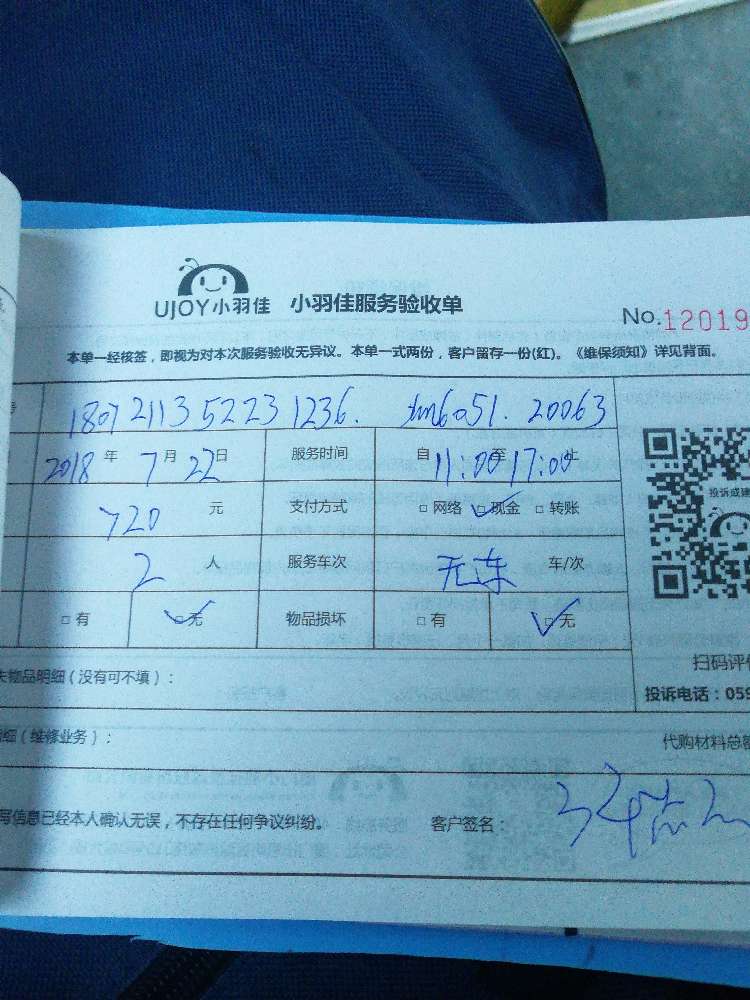 UJOY小羽佳 小羽佳服务验收单
No.12019
本单一经核签，即视为对本次服务验收无异议。本单一式两份，客户留存一份(红)。《维保须知》详见背面。
1807211352231236. 6051. 20063
2018 年 7 月 22 日 服务时间 自 11:00 至 17:00 止
720 元 支付方式 □ 网络 ☑ 现金 □ 转账
投诉或建
2 人 服务车次 无车 车/次
□ 有 ☑ 无 物品损坏 □ 有 ☑ 无
扫码评价
失物品明细（没有可不填）：
投诉电话：059
细（维修业务）： 代购材料总额
写信息已经本人确认无误，不存在任何争议纠纷。 客户签名：